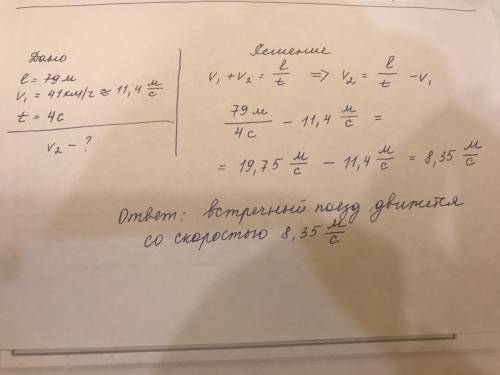 Дано
l = 79 м
v₁ = 41 км/ч ≈ 11,4 м/с
t = 4 с
v₂ - ?
Решение
v₁ + v₂ = l/t => v₂ = l/t - v₁
79 м/4 с - 11,4 м/с =
= 19,75 м/с - 11,4 м/с = 8,35 м/с
Ответ: встречный поезд движется
со скоростью 8,35 м/с